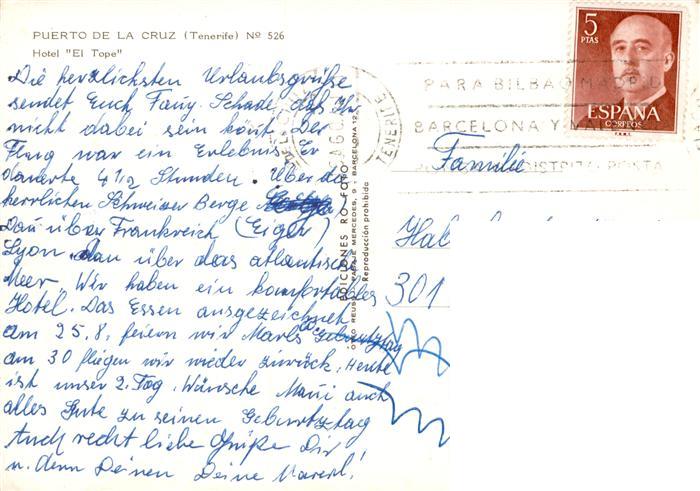 PUERTO DE LA CRUZ (Tenerife) Nº 526
Hotel "El Tope"
Die herzlichsten Urlaubsgrüße
sendet Euch Fany. Schade, daß Ihr
nicht dabei sein könt. Der
Flug war ein Erlebnis. Er
dauerte 4 1/2 Stunden. Über die
herrlichen Schweiser Berge
Dan über Frankreich (Eiger)
Lyon dan über das atlantische
Meer. Wir haben ein komfortables
Hotel. Das Essen ausgezeichnet
am 25.8. feiern wir
am 30 fliegen wir wieder zurück. Heute
ist unser 2. Tag. Wünsche Maxi auch
alles Gute zu seinen Geburtztag
Auch recht liebe Grüße Dir
u. denn Deinen Deine
EDICIONES RO-FOTO
MERCEDES, 9 - BARCELONA 12
Reproducción prohibida
PARA BILBAO MADRID
BARCELONA Y
DISTRITO POSTAL
TENERIFE
5
PTAS
ESPAÑA
CORREOS
F.N.M.T.
Familie
301